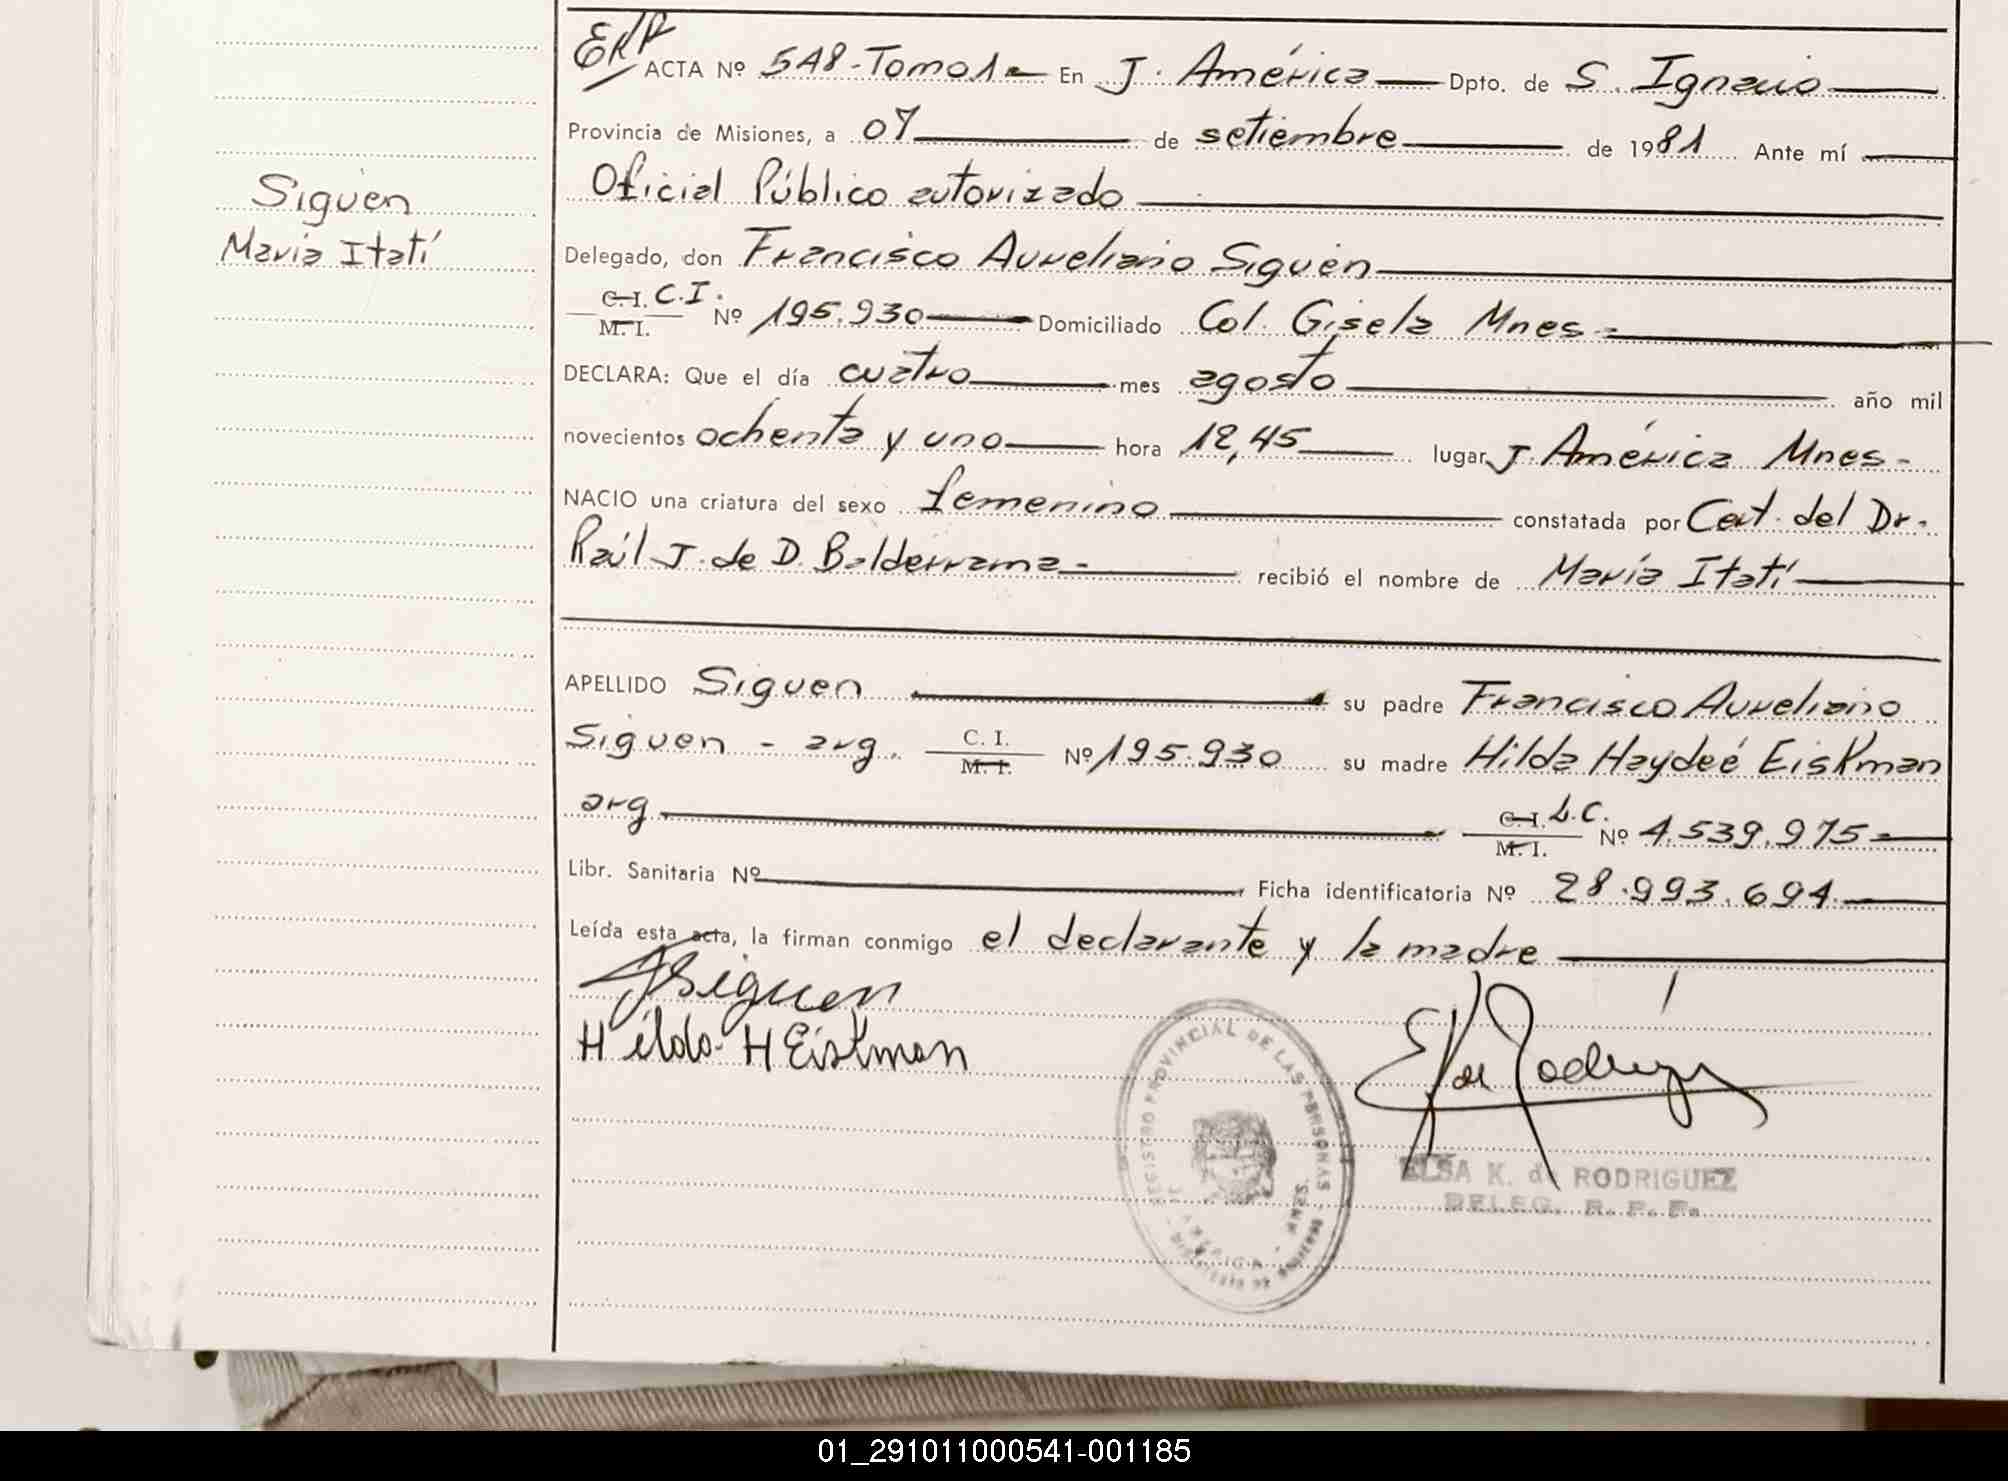 ACTA Nº 548-Tomo 1 - En J. América Dpto. de S. Ignacio
Provincia de Misiones, a 07 de setiembre de 1981 Ante mí
Oficial Público autorizado
Siguen
María Itatí
Delegado, don Francisco Aureliano Siguen
C.I. C.I.
M.I. Nº 195.930 Domiciliado Col. Gisela Mnes -
DECLARA: Que el día cuatro mes agosto año mil
novecientos ochenta y uno hora 12,45 lugar J. América Mnes -
NACIO una criatura del sexo femenino constatada por Cert. del Dr.
Raúl J. de D. Balderrama - recibió el nombre de María Itatí
APELLIDO Siguen su padre Francisco Aureliano
Siguen - arg. C. I. M. I. Nº 195.930 su madre Hilda Haydeé Eiskman
arg C.I. L.C. M.I. Nº 4.539.975 -
Libr. Sanitaria Nº Ficha identificatoria Nº 28.993.694
Leída esta acta, la firman conmigo el declarante y la madre
Siguen
Hilda H Eiskman
REGISTRO PROVINCIAL DE LAS PERSONAS
ELSA K. de RODRIGUEZ
DELEG. R. P. P.
01_291011000541-001185